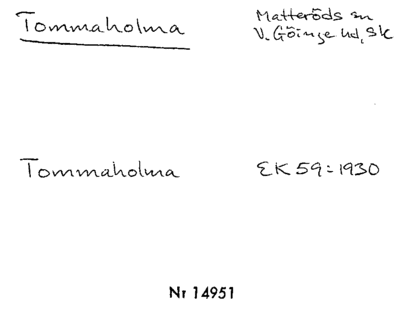 Tommaholma
Matteröds sn
V. Göinge hd, Sk
Tommaholma
EK 59:1930
Nr 14951